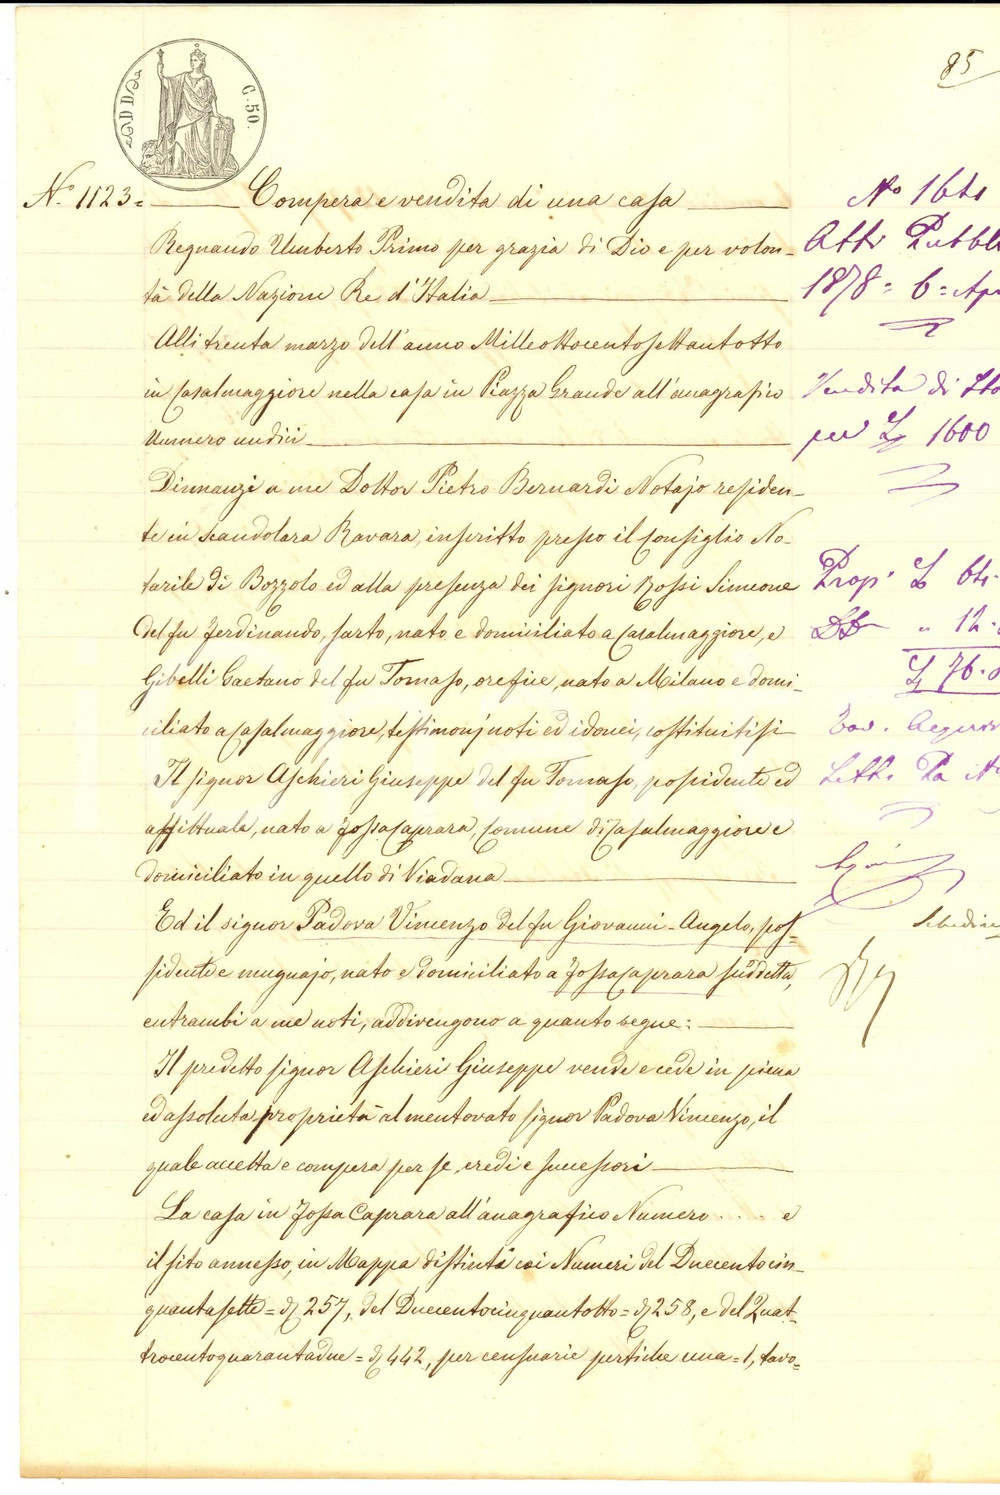 85
C. 50.
N. 1123 = Compera e vendita di una casa
Regnando Umberto Primo per grazia di Dio e per volon-
tà della Nazione Re d'Italia
Alli trenta marzo dell'anno Milleottocentosettantotto
in Casalmaggiore nella casa in Piazza Grande all'anagrafico
Numero undici
Dinnanzi a me Dottor Pietro Bernardi Notajo residen-
te in Scandolara Ravara, inscritto presso il Consiglio No-
tarile di Bozzolo ed alla presenza dei signori Rossi Simeone
del fu Ferdinando, sarto, nato e domiciliato a Casalmaggiore, e
Gibelli Gaetano del fu Tomaso, orefice, nato a Milano e domi-
ciliato a Casalmaggiore, testimonj noti ed idonei, costituitisi
Il signor Aschieri Giuseppe del fu Tomaso, possidente ed
affittuale, nato a Fossacaprara, Comune di Casalmaggiore e
domiciliato in quello di Viadana
Ed il signor Padova Vincenzo del fu Giovanni-Angelo, pos-
sidente e mugnajo, nato e domiciliato a Fossacaprara suddetta,
entrambi a me noti, addivengono a quanto segue:
Il predetto signor Aschieri Giuseppe vende e cede in piena
ed assoluta proprietà al mentovato signor Padova Vincenzo, il
quale accetta e compera per se, eredi e successori
La casa in Fossa Caprara all'anagrafico Numero .... e
il sito annesso, in Mappa distinti coi Numeri del Duecentocin-
quantasette = N 257, del Duecentocinquantotto = N 258, e del Quat-
trocentoquarantadue = N 442, per censuarie pertiche una = 1, tavo=
Atti Pubbl
1878 = 6 = Apr
Vendita di
per L 1600
Prop. L
" 12.
L 76.0